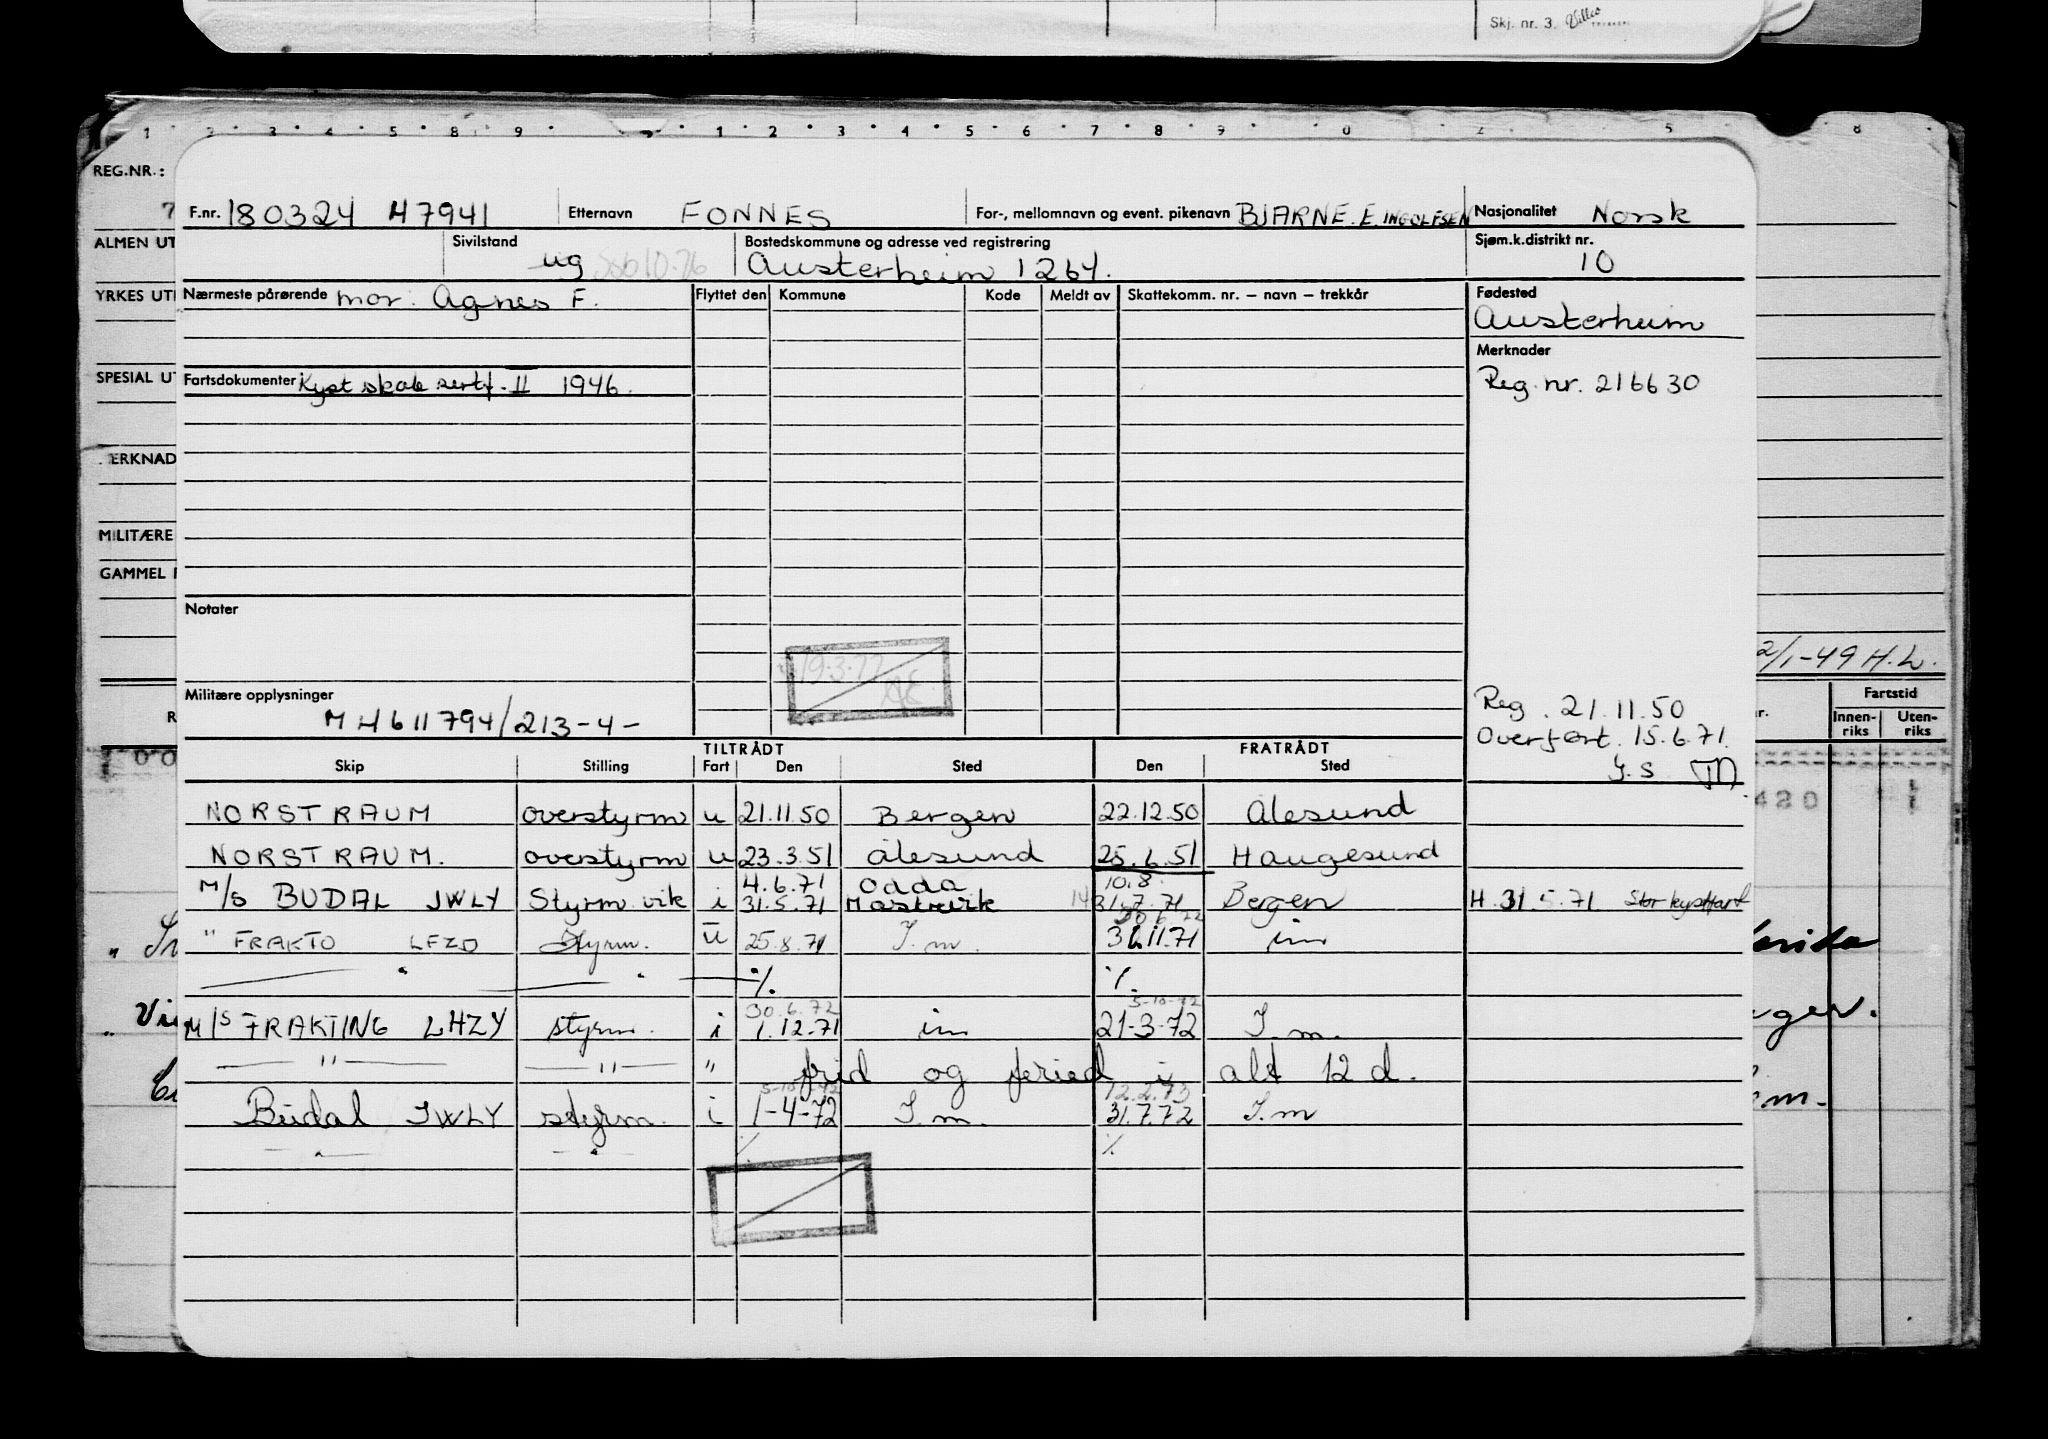 Skj. nr. 3.
REG.NR.:
F.nr. 180324 47941 Etternavn FONNES For-, mellomnavn og event. pikenavn BJARNE. E. INGOLFSEN Nasjonalitet Norsk
ALMEN UT
Sivilstand ug Bostedskommune og adresse ved registrering Austerheim 1264. Sjøm.k.distrikt nr. 10
YRKES UT
Nærmeste pårørende mor. Agnes F. Flyttet den Kommune Kode Meldt av Skattekomm. nr. – navn – trekkår Fødested
Austerheim
Merknader
SPESIAL UT
Fartsdokumenter Kyst skab sertf. II 1946. Reg. nr. 216630
ERKNAD
MILITÆRE
GAMMEL
Notater
19.3.77
2/1-49 H.L.
Militære opplysninger Reg. 21.11.50
M 4611794/213-4- Overført. 15.6.71.
J.S.
Fartstid
Innenriks Utenriks
TILTRÅDT FRATRÅDT
Skip Stilling Fart Den Sted Den Sted
NORSTRAUM overstyrm u 21.11.50 Bergen 22.12.50 Ålesund
NORSTRAUM. overstyrm u 23.3.51 Ålesund 25.6.51 Haugesund
4.6.71 Odda 10.8.
M/S BUDAL JWLY Styrm. vik i 31.5.71 Mastrevik 31.7.71 Bergen H. 31.5.71 Stor kystfart
" FRAKTO LFZD Styrm. u 25.8.71 I.m. 30.11.71 im
" " % %
30.6.72 5-10-72
M/S FRAKTING LHZY styrm. i 1.12.71 im 21-3-72 I.m.
" " " frid og feried i alt 12 d.
5-10-72 12.2.73
Budal JWLY styrm. i 1-4-72 I.m. 31.7.72 I.m
" " % %